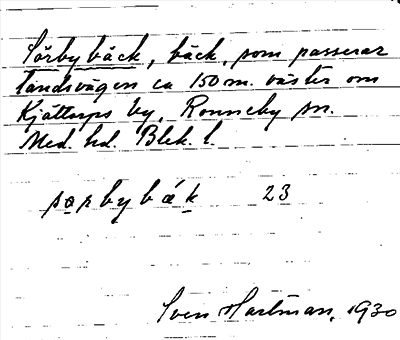 Sörbybäck, bäck, som passerar
landsvägen ca 150 m. väster om
Kjättorps by, Ronneby sn.
Med. hd. Blek. l.
sǫrbybäk 23
Sven Hartman, 1930